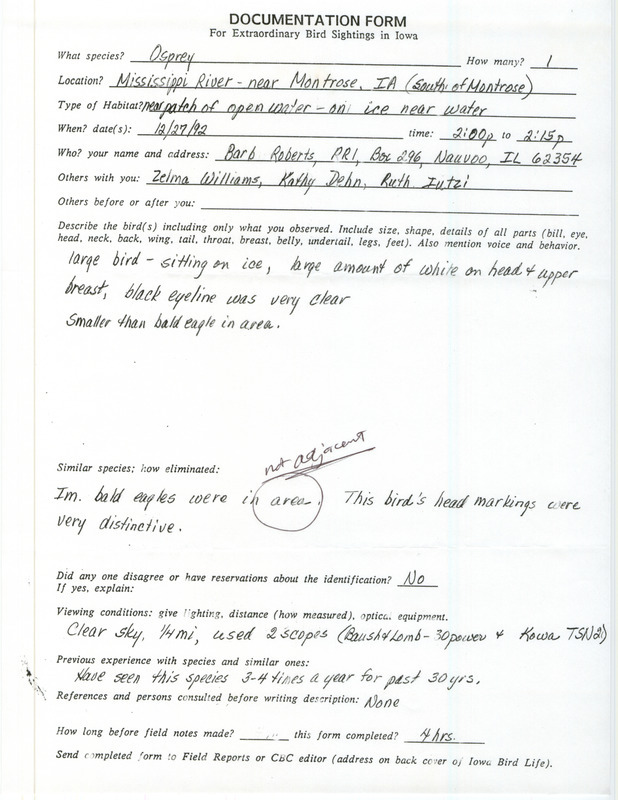 DOCUMENTATION FORM
For Extraordinary Bird Sightings in Iowa
What species? Osprey How many? 1
Location? Mississippi River - near Montrose, IA (south of Montrose)
Type of Habitat? near patch of open water - on ice near water
When? date(s): 12/27/92 time: 2:00p to 2:15p
Who? your name and address: Barb Roberts, RR1, Box 296, Nauvoo, IL 62354
Others with you: Zelma Williams, Kathy Dehn, Ruth Iutzi
Others before or after you:
Describe the bird(s) including only what you observed. Include size, shape, details of all parts (bill, eye,
head, neck, back, wing, tail, throat, breast, belly, undertail, legs, feet). Also mention voice and behavior.
large bird - sitting on ice, large amount of white on head & upper
breast, black eyeline was very clear
Smaller than bald eagle in area.
not adjacent
Similar species; how eliminated:
Im. bald eagles were in area. This bird's head markings were
very distinctive.
Did any one disagree or have reservations about the identification? No
If yes, explain:
Viewing conditions: give lighting, distance (how measured), optical equipment.
Clear sky, 1/4 mi, used 2 scopes (Baush & Lomb - 30 power & Kowa TSN2)
Previous experience with species and similar ones:
Have seen this species 3-4 times a year for past 30 yrs.
References and persons consulted before writing description: None
How long before field notes made? this form completed? 4 hrs.
Send completed form to Field Reports or CBC editor (address on back cover of Iowa Bird Life).